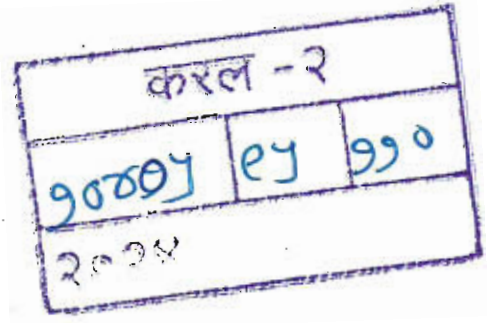 करल - २
१०४७५ ९५ ११०
२०१४